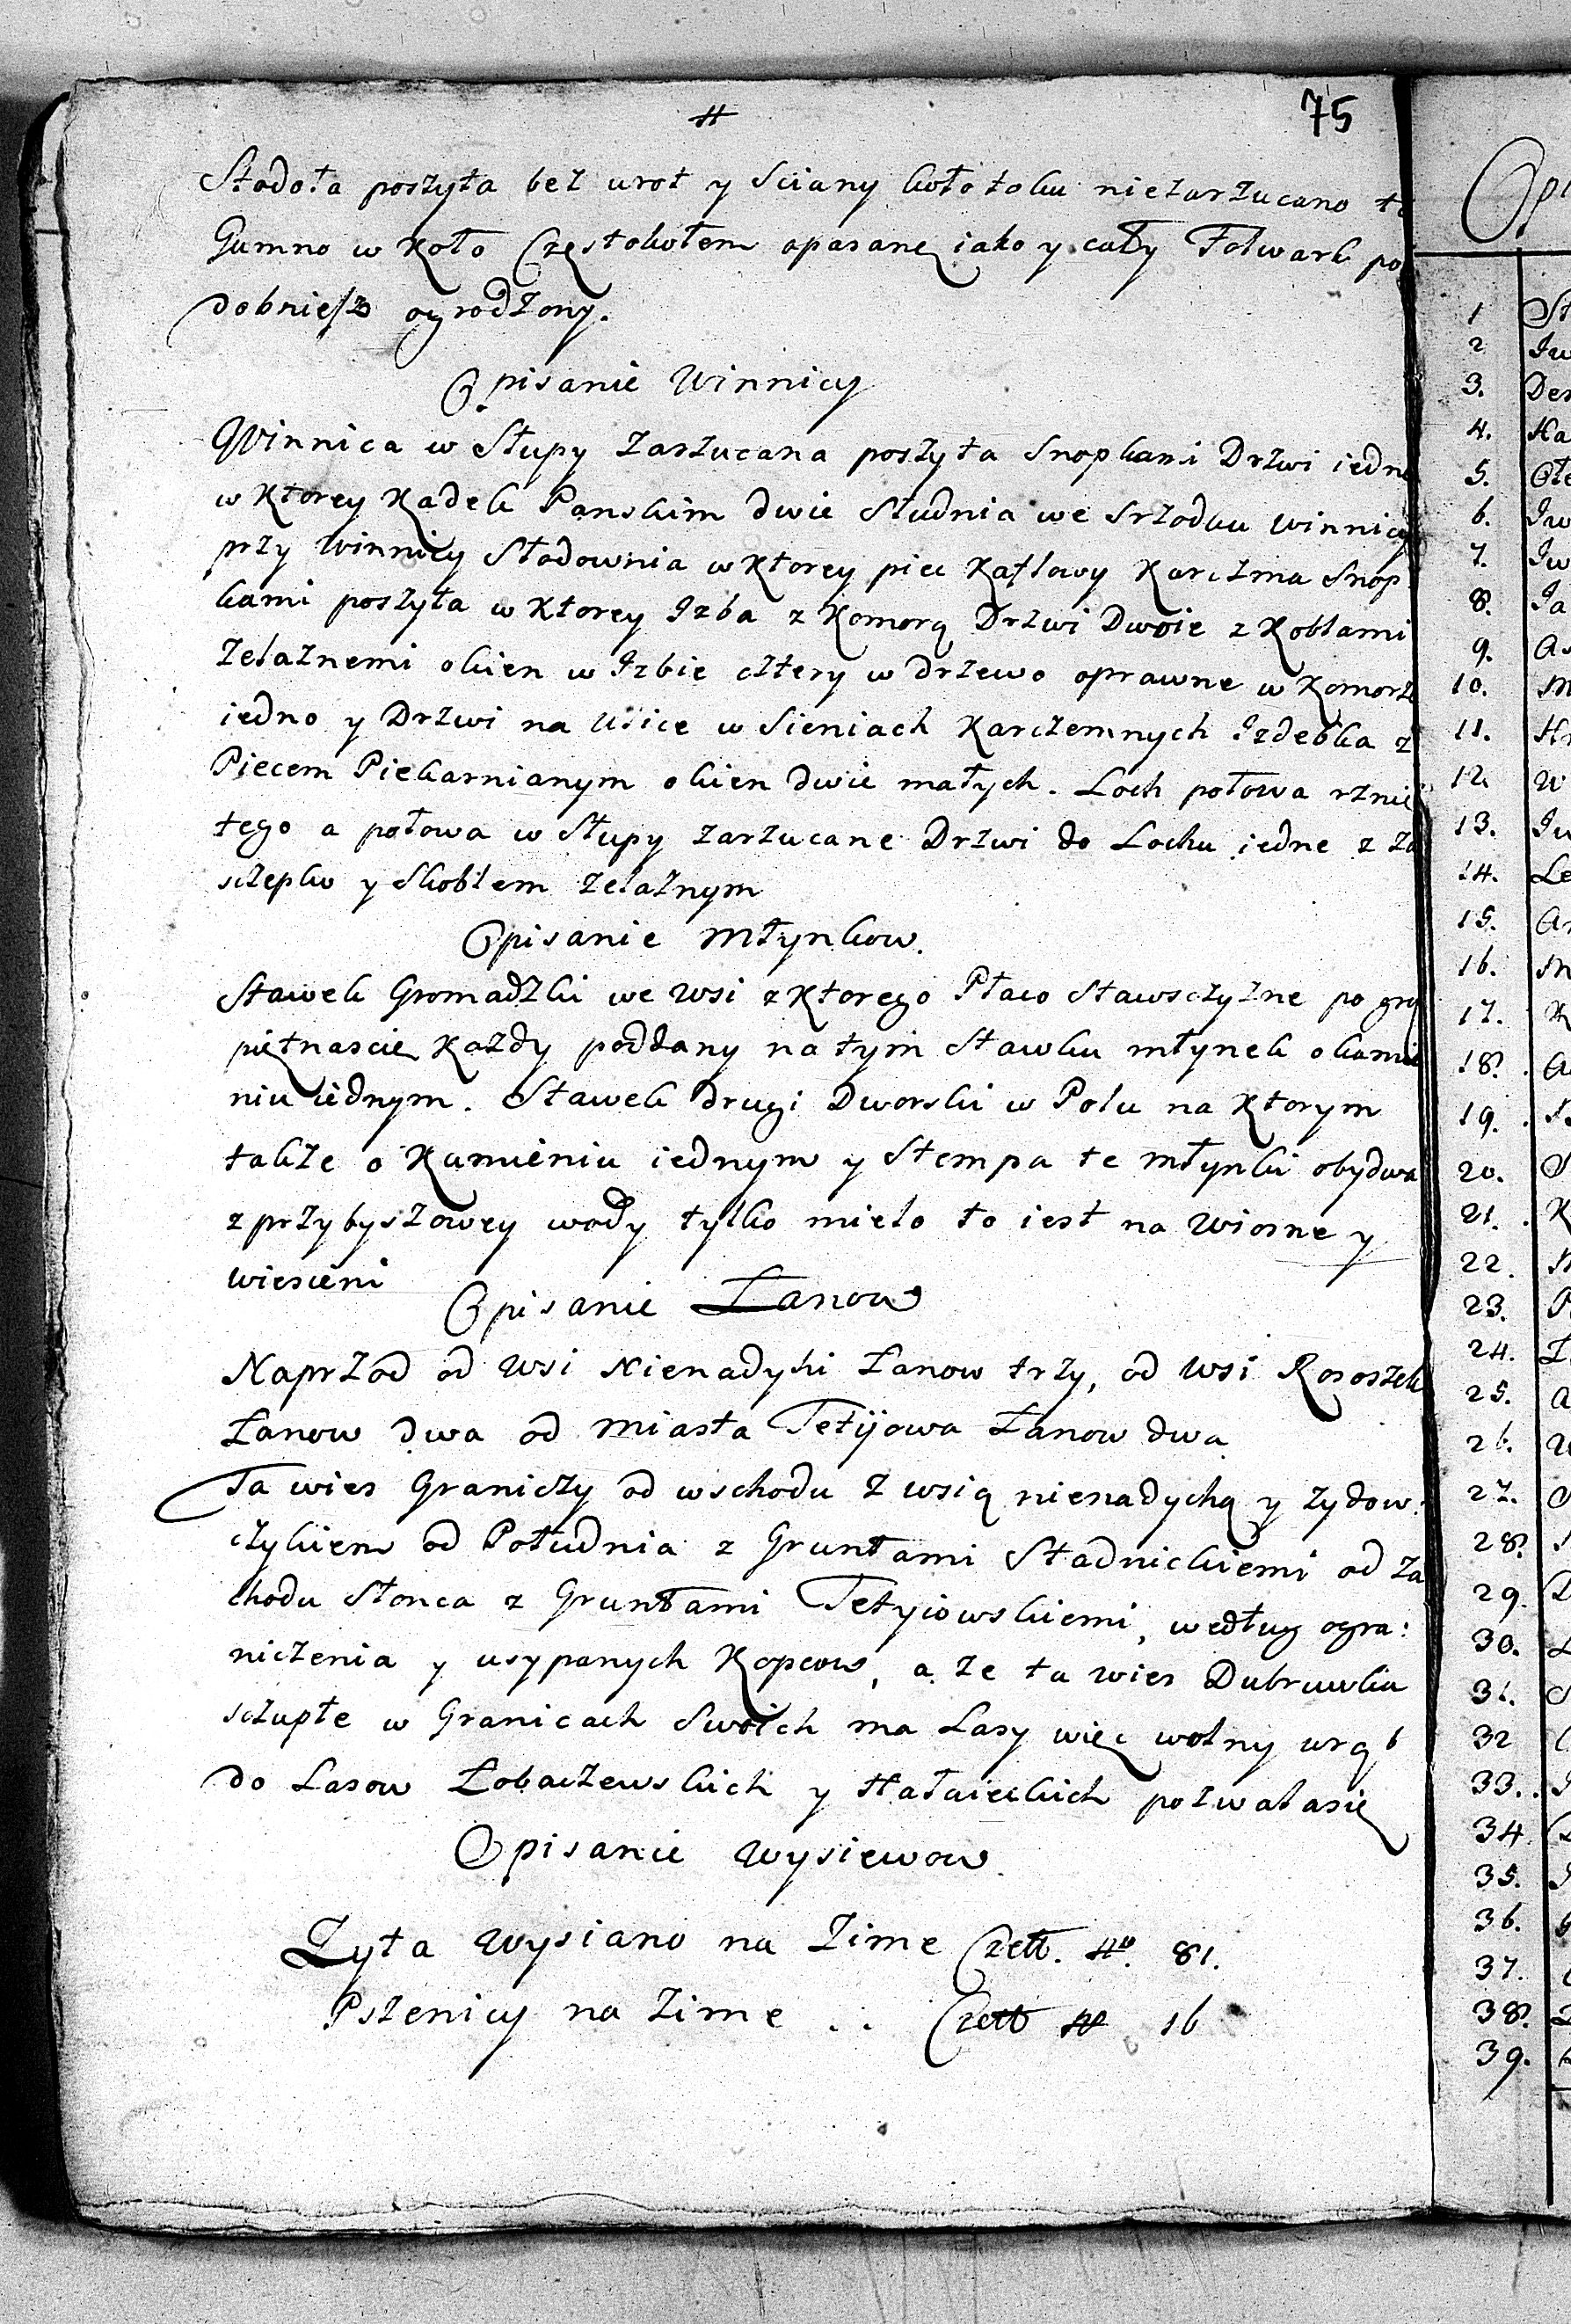 #
75
Stodoła poszyta bez wrot y Sciany koło toku niezarzucano
Gumno w Koło Częstokołem opasane iako y cały Folwark po
dobniesz ogrodzony.
Opisanie Winnicy
Winnica w Słupy Zarzucana poszyta Snopkami Drzwi iedne
w Ktorey Kadek Panskim dwie Studnia we Srzodku winnicy
przy Winnicy Słodownia w Ktorey piec Kaflowy Karczma Snop
kami poszyta w Ktorey Izba z Komorą Drzwi Dwoie z Koblami
Zelaznemi okien w Izbie cztery w drzewo oprawne w Komorze
iedno y Drzwi na Ulice w Sieniach Karczemnych Izdebka z
Piecem Piekarnianym okien dwie małych. Loch połowa rznię
tego a połowa w Słupy zarzucane Drzwi do Lochu iedne z Za
sczepko y Skoblem Zelaznym
Opisanie Młynkow.
Stawek Gromadzki we Wsi z Ktorego Płaco Stawsczyzne po gro
piętnascie Kazdy poddany na tym Stawku młynek o kamie
niu iednym. Stawek drugi Dworski w Polu na Ktorym
takze o Kamieniu iednym y Stempa te Młynki obydwa
z przybyszowey wody tylko mielo to iest na Wiosne y
wiesieni
Opisanie Łanow
Naprzod od Wsi Nienadyhi Łanow trzy, od Wsi Rososzek
Łanow dwa od Miasta Tetijowa Łanow dwa
Ta wies Graniczy od wschodu z wsią nienadychą y zydow:
czykiem od Południa z Gruntami Stadnickiemi od Za
chodu Słonca z Gruntami Tetyiowskiemi, według ogra:
niczenia y usypanych Kopcow, a ze ta wies Dubrowka
sczupłe w Granicach Swoich ma Lasy więc wolny urąb
do Lasow Łobaczewskich y Hałaieckich pozwalasię
Opisanie Wysiewow
Zyta Wysiano na Zime Czett. No. 81.
Pszenicy na Zime . . Czett No 16
1
2
3.
4.
5.
6.
7.
8.
9.
10.
11.
12
13.
14.
15.
16.
17.
18.
19.
20.
21.
22.
23.
24.
25.
26.
27.
28.
29.
30.
31.
32
33.
34
35.
36.
37.
38.
39.